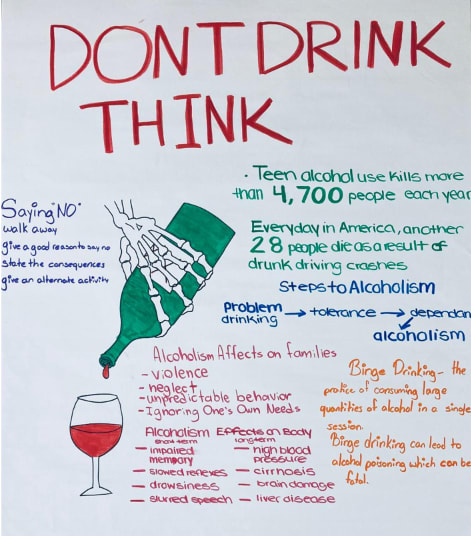 DONT DRINK
THINK
· Teen alcohol use kills more
than 4,700 people each year
Everyday in America, another
28 people die as a result of
drunk driving crashes
Saying "NO"
walk away
give a good reason to say no
state the consequences
give an alternate activity
Steps to Alcoholism
Problem drinking → tolerance → dependan
alcoholism
Alcoholism Affects on families
- violence
- neglect
- unpredictable behavior
- Ignoring One's Own Needs
Binge Drinking - the
pratice of consuming large
quantities of alcohol in a single
session.
Binge drinking can lead to
alcohol poisoning which can be
fatal.
Alcoholism Effects on Body
short term
— impaired
memory
— slowed reflexes
— drowsiness
— slurred speech
long term
— high blood
pressure
— cirrhosis
— brain damage
— liver disease